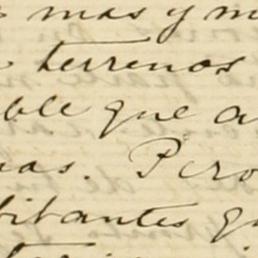 mas y m
terrenos
ble que a
as. Pero
bitantes q